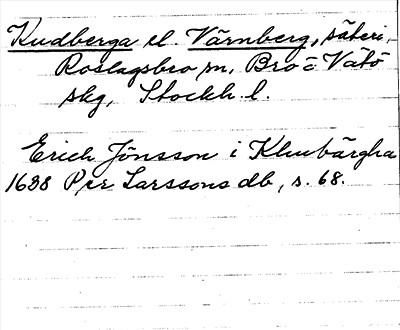 Kudberga el. Värnberg, säteri,
Roslagsbro sn, Bro o. Vätö
skg, Stockh. l.
Erich Jönsson i Khubärgha
1638 Per Larssons db, s. 68.